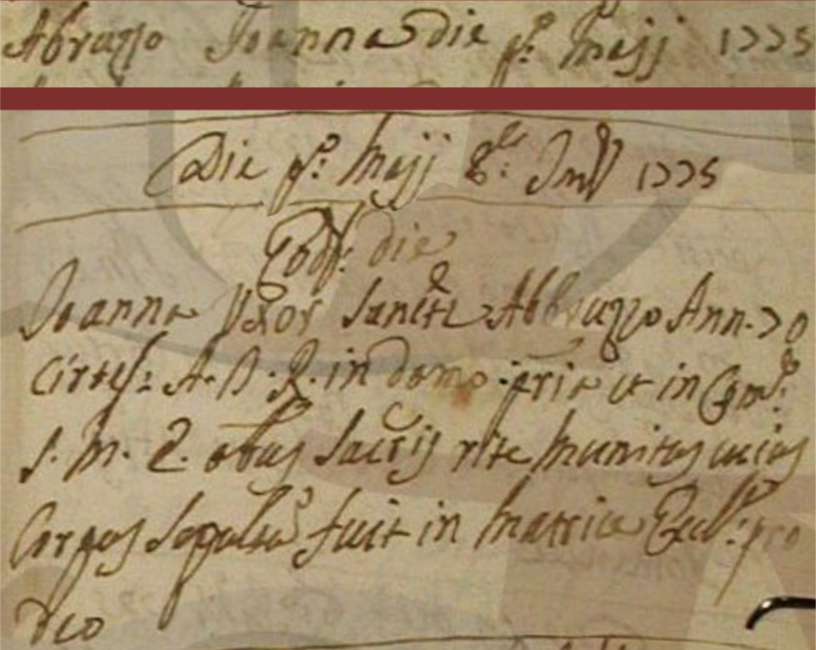 Abruzzo Joanna die p.º Maij 1775
Die p.º Maij 8.ae Ind. 1775
Eod: die
Joanna Uxor Sancti Abbruzzo Ann. 70
circ: A. D. R. in domo pria et in Com.
S. M. E. obijt Sacris rite munitus cuius
Corpus sepultũ fuit in Matrice Eccl.ª pro
Deo